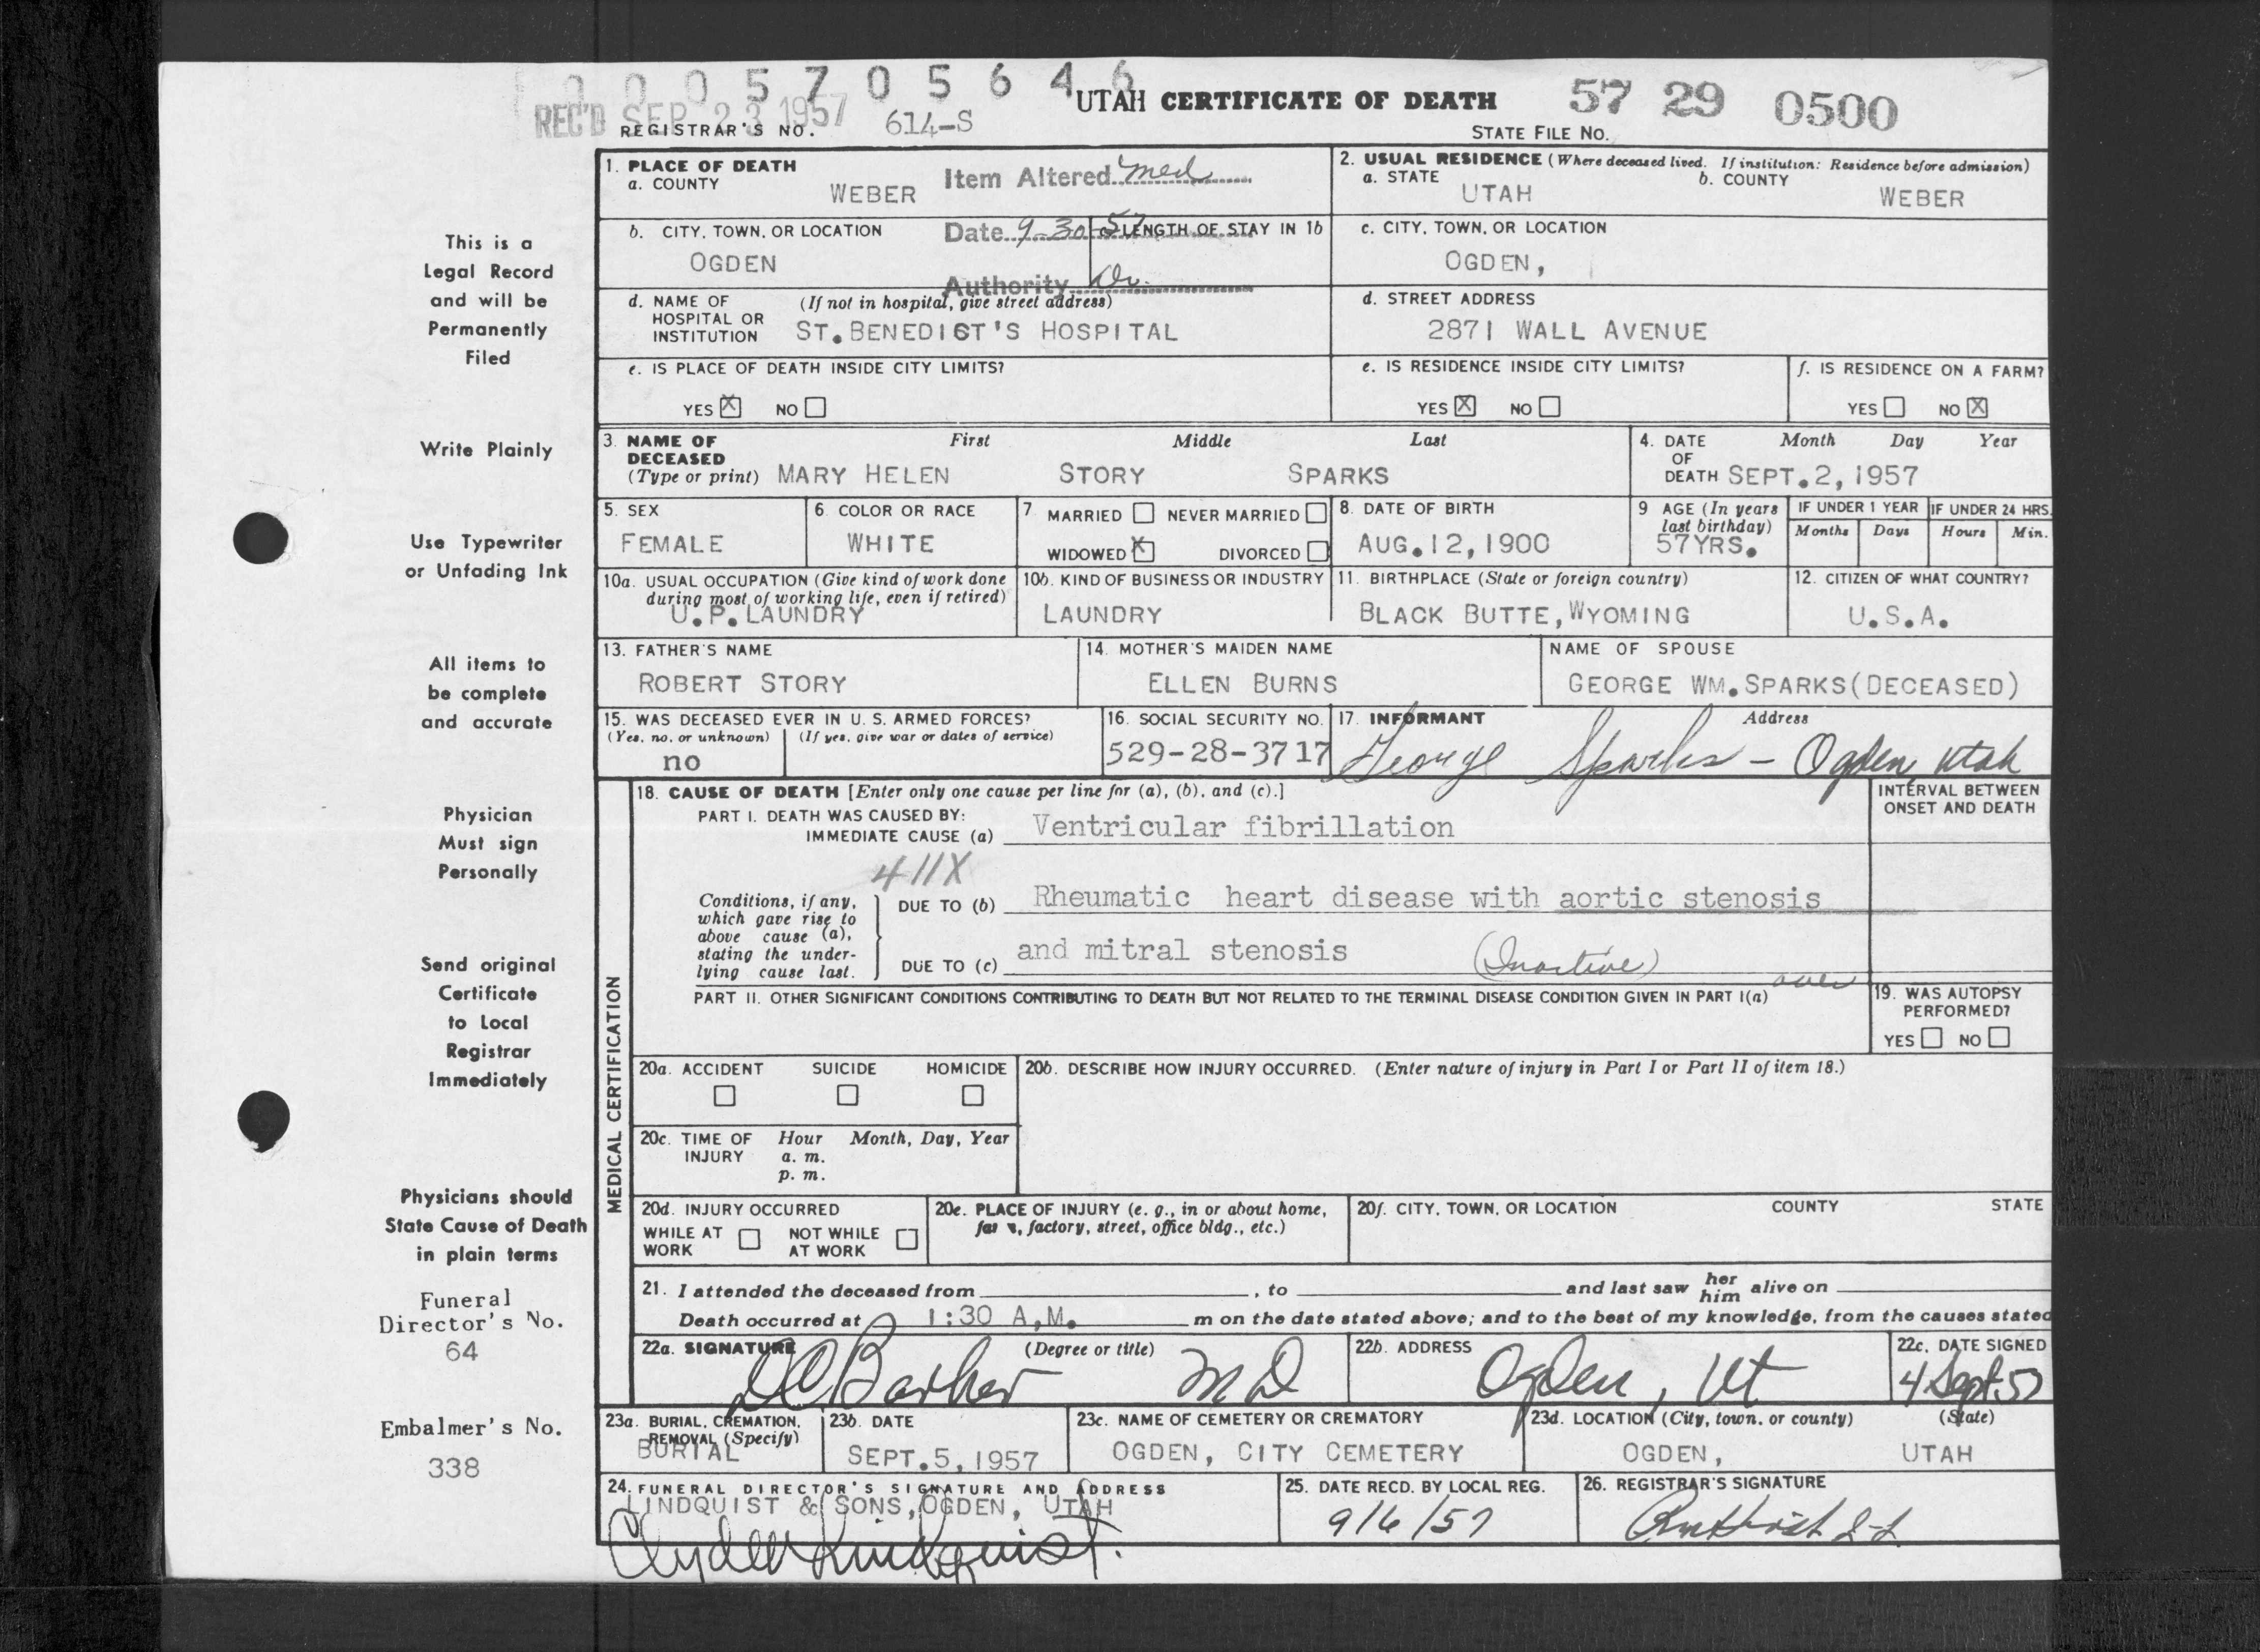 0 0 0 5 7 0 5 6 4 6
REC'D SEP 23 1957
UTAH CERTIFICATE OF DEATH
57 29 0500
REGISTRAR'S NO. 614-S
STATE FILE NO.
This is a
Legal Record
and will be
Permanently
Filed
Write Plainly
Use Typewriter
or Unfading Ink
All items to
be complete
and accurate
Physician
Must sign
Personally
Send original
Certificate
to Local
Registrar
Immediately
Physicians should
State Cause of Death
in plain terms
Funeral
Director's No.
64
Embalmer's No.
338
1. PLACE OF DEATH
a. COUNTY
WEBER
Item Altered med
Date 9-30-57
Authority Dr.
2. USUAL RESIDENCE (Where deceased lived. If institution: Residence before admission)
a. STATE
UTAH
b. COUNTY
WEBER
b. CITY, TOWN, OR LOCATION
OGDEN
c. LENGTH OF STAY IN 1b
c. CITY, TOWN, OR LOCATION
OGDEN,
d. NAME OF HOSPITAL OR INSTITUTION
(If not in hospital, give street address)
ST. BENEDICT'S HOSPITAL
d. STREET ADDRESS
2871 WALL AVENUE
e. IS PLACE OF DEATH INSIDE CITY LIMITS?
YES X NO
e. IS RESIDENCE INSIDE CITY LIMITS?
YES X NO
f. IS RESIDENCE ON A FARM?
YES NO X
3. NAME OF DECEASED (Type or print)
First Middle Last
MARY HELEN STORY SPARKS
4. DATE OF DEATH
Month Day Year
SEPT. 2, 1957
5. SEX
FEMALE
6. COLOR OR RACE
WHITE
7. MARRIED NEVER MARRIED
WIDOWED X DIVORCED
8. DATE OF BIRTH
AUG. 12, 1900
9 AGE (In years last birthday)
57YRS.
IF UNDER 1 YEAR
Months Days
IF UNDER 24 HRS.
Hours Min.
10a. USUAL OCCUPATION (Give kind of work done during most of working life, even if retired)
U.P. LAUNDRY
10b. KIND OF BUSINESS OR INDUSTRY
LAUNDRY
11. BIRTHPLACE (State or foreign country)
BLACK BUTTE, WYOMING
12. CITIZEN OF WHAT COUNTRY?
U.S.A.
13. FATHER'S NAME
ROBERT STORY
14. MOTHER'S MAIDEN NAME
ELLEN BURNS
NAME OF SPOUSE
GEORGE WM. SPARKS (DECEASED)
15. WAS DECEASED EVER IN U. S. ARMED FORCES?
(Yes, no, or unknown) (If yes, give war or dates of service)
no
16. SOCIAL SECURITY NO.
529-28-3717
17. INFORMANT Address
George Sparks - Ogden, Utah
MEDICAL CERTIFICATION
18. CAUSE OF DEATH [Enter only one cause per line for (a), (b), and (c).]
INTERVAL BETWEEN ONSET AND DEATH
PART I. DEATH WAS CAUSED BY:
IMMEDIATE CAUSE (a) Ventricular fibrillation
411X
Conditions, if any, which gave rise to above cause (a), stating the underlying cause last.
DUE TO (b) Rheumatic heart disease with aortic stenosis
DUE TO (c) and mitral stenosis (Inactive)
over
PART II. OTHER SIGNIFICANT CONDITIONS CONTRIBUTING TO DEATH BUT NOT RELATED TO THE TERMINAL DISEASE CONDITION GIVEN IN PART I(a)
19. WAS AUTOPSY PERFORMED?
YES NO
20a. ACCIDENT SUICIDE HOMICIDE
20b. DESCRIBE HOW INJURY OCCURRED. (Enter nature of injury in Part I or Part II of item 18.)
20c. TIME OF INJURY
Hour Month, Day, Year
a. m.
p. m.
20d. INJURY OCCURRED
WHILE AT WORK NOT WHILE AT WORK
20e. PLACE OF INJURY (e. g., in or about home, farm, factory, street, office bldg., etc.)
20f. CITY, TOWN, OR LOCATION COUNTY STATE
21. I attended the deceased from , to and last saw her him alive on
Death occurred at 1:30 A.M. m on the date stated above; and to the best of my knowledge, from the causes stated
22a. SIGNATURE (Degree or title)
Barker MD
22b. ADDRESS
Ogden, Ut
22c. DATE SIGNED
4 Sept 57
23a. BURIAL, CREMATION, REMOVAL (Specify)
BURIAL
23b. DATE
SEPT. 5, 1957
23c. NAME OF CEMETERY OR CREMATORY
OGDEN, CITY CEMETERY
23d. LOCATION (City, town, or county) (State)
OGDEN, UTAH
24. FUNERAL DIRECTOR'S SIGNATURE AND ADDRESS
LINDQUIST & SONS, OGDEN, UTAH
Clyde Lindquist.
25. DATE RECD. BY LOCAL REG.
9/6/57
26. REGISTRAR'S SIGNATURE